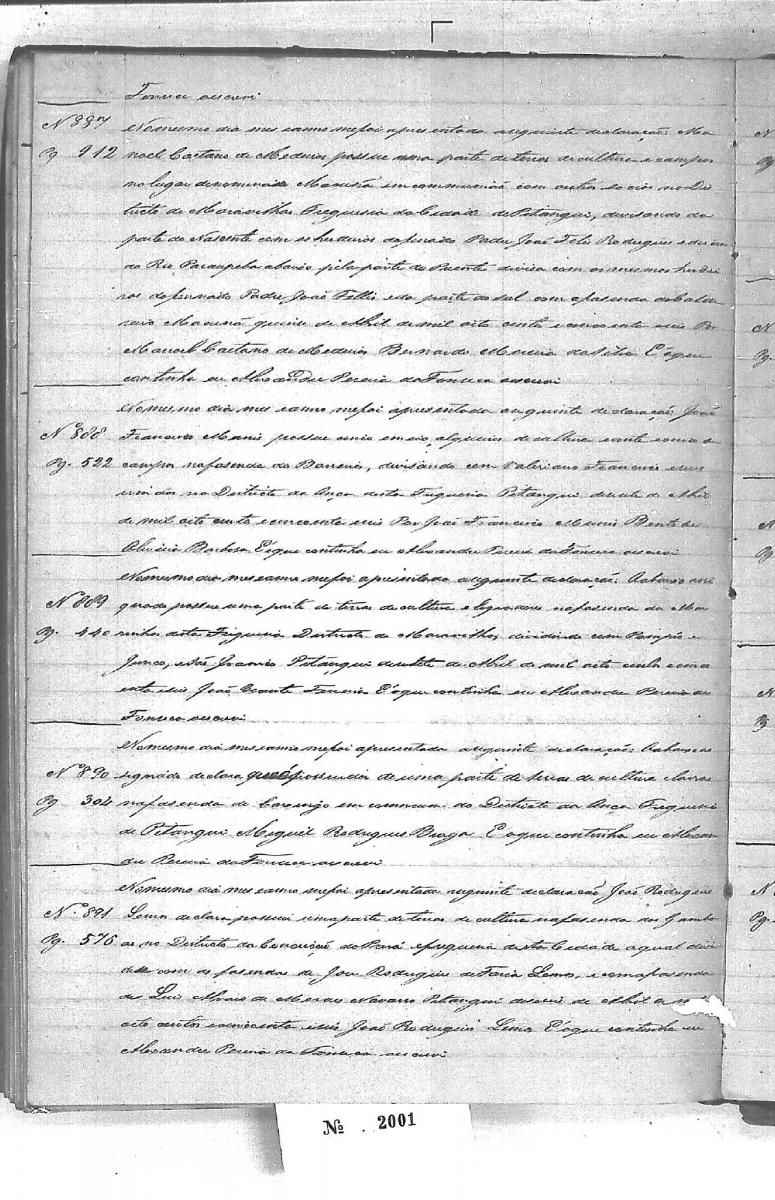 Fonseca escrevi
Nº 887
No mesmo dia mes e anno me foi apresentada a seguinte declaração: Ma
Pg. 912
noel Caetano de Medeiros possue uma parte de terras de cultura e campos
no lugar denominado Macuná em communhão com outros socios no Dis
tricto de Maravilhas Freguesia da Cidade de Pitangui, divisando da
parte do Nascente com os herdeiros do finado Padre João Felis Rodrigues e
do Rio Paraupeba abaixo pela parte do Puente divisa com os mesmos herdei
ros do finado Padre João Fellis e da parte do sul com a fasenda do
Macuná quinse de Abril de mil oito cento e cincoenta e seis Por
Manoel Caetano de Medeiros Bernardo Moreira da Silva E o que
continha eu Alexandre Pereira da Fonseca escrevi
No mesmo dia mes e anno me foi apresentada a seguinte declaração: João
Nº 888
Francisco Muniz possue alqueires de cultura
Pg. 522
campos na fasenda da Barreira, divisando com Valeriano Francisco e seus
no Districto da Onça desta Freguesia Pitangui desete de Abril
de mil oito cento e cincoenta e seis Por João Francisco Muniz Bento de
Oliveira Barbosa E o que continha eu Alexandre Pereira da Fonseca escrevi
No mesmo dia mes e anno me foi apresentada a seguinte declaração: O abaixo assi
Nº 889
gnado possue uma parte de terras de cultura e logradores na fasenda da Ma
Pg. 440
rinha desta Freguesia Districto de Maravilhas dividindo com Pompeo e
Junco, e São Joanico Pitangui desete de Abril de mil oito cento e cinco
enta e seis João Ferreira E o que continha eu Alexandre Pereira da
Fonseca escrevi
No mesmo dia mes e anno me foi apresentada a seguinte declaração: O abaixo as
Nº 890
signado declara que é possuidor de uma parte de terras de cultura e lavras
Pg. 304
na fasenda do em commum do Districto da Onça Freguesia
de Pitangui Miguel Rodrigues Braga E o que continha eu Alexan
dre Pereira da Fonseca escrevi
No mesmo dia mes e anno me foi apresentada a seguinte declaração João Rodrigues
Nº 891
Lemos declara possuir uma parte de terras de cultura na fasenda dos Gamb
Pg. 576
as no Districto da Conceição do Pará e freguesia desta Cidade a qual divi
de se com as fasendas de Jose Rodrigues de Faria Lemos, e com a fasenda
de Luis Alvares de Moraes Navarro Pitangui deseseis de Abril de m
oito centos e cincoenta e seis João Rodrigues Lemos E o que continha eu
Alexandre Pereira da Fonseca escrevi
Nº 2001